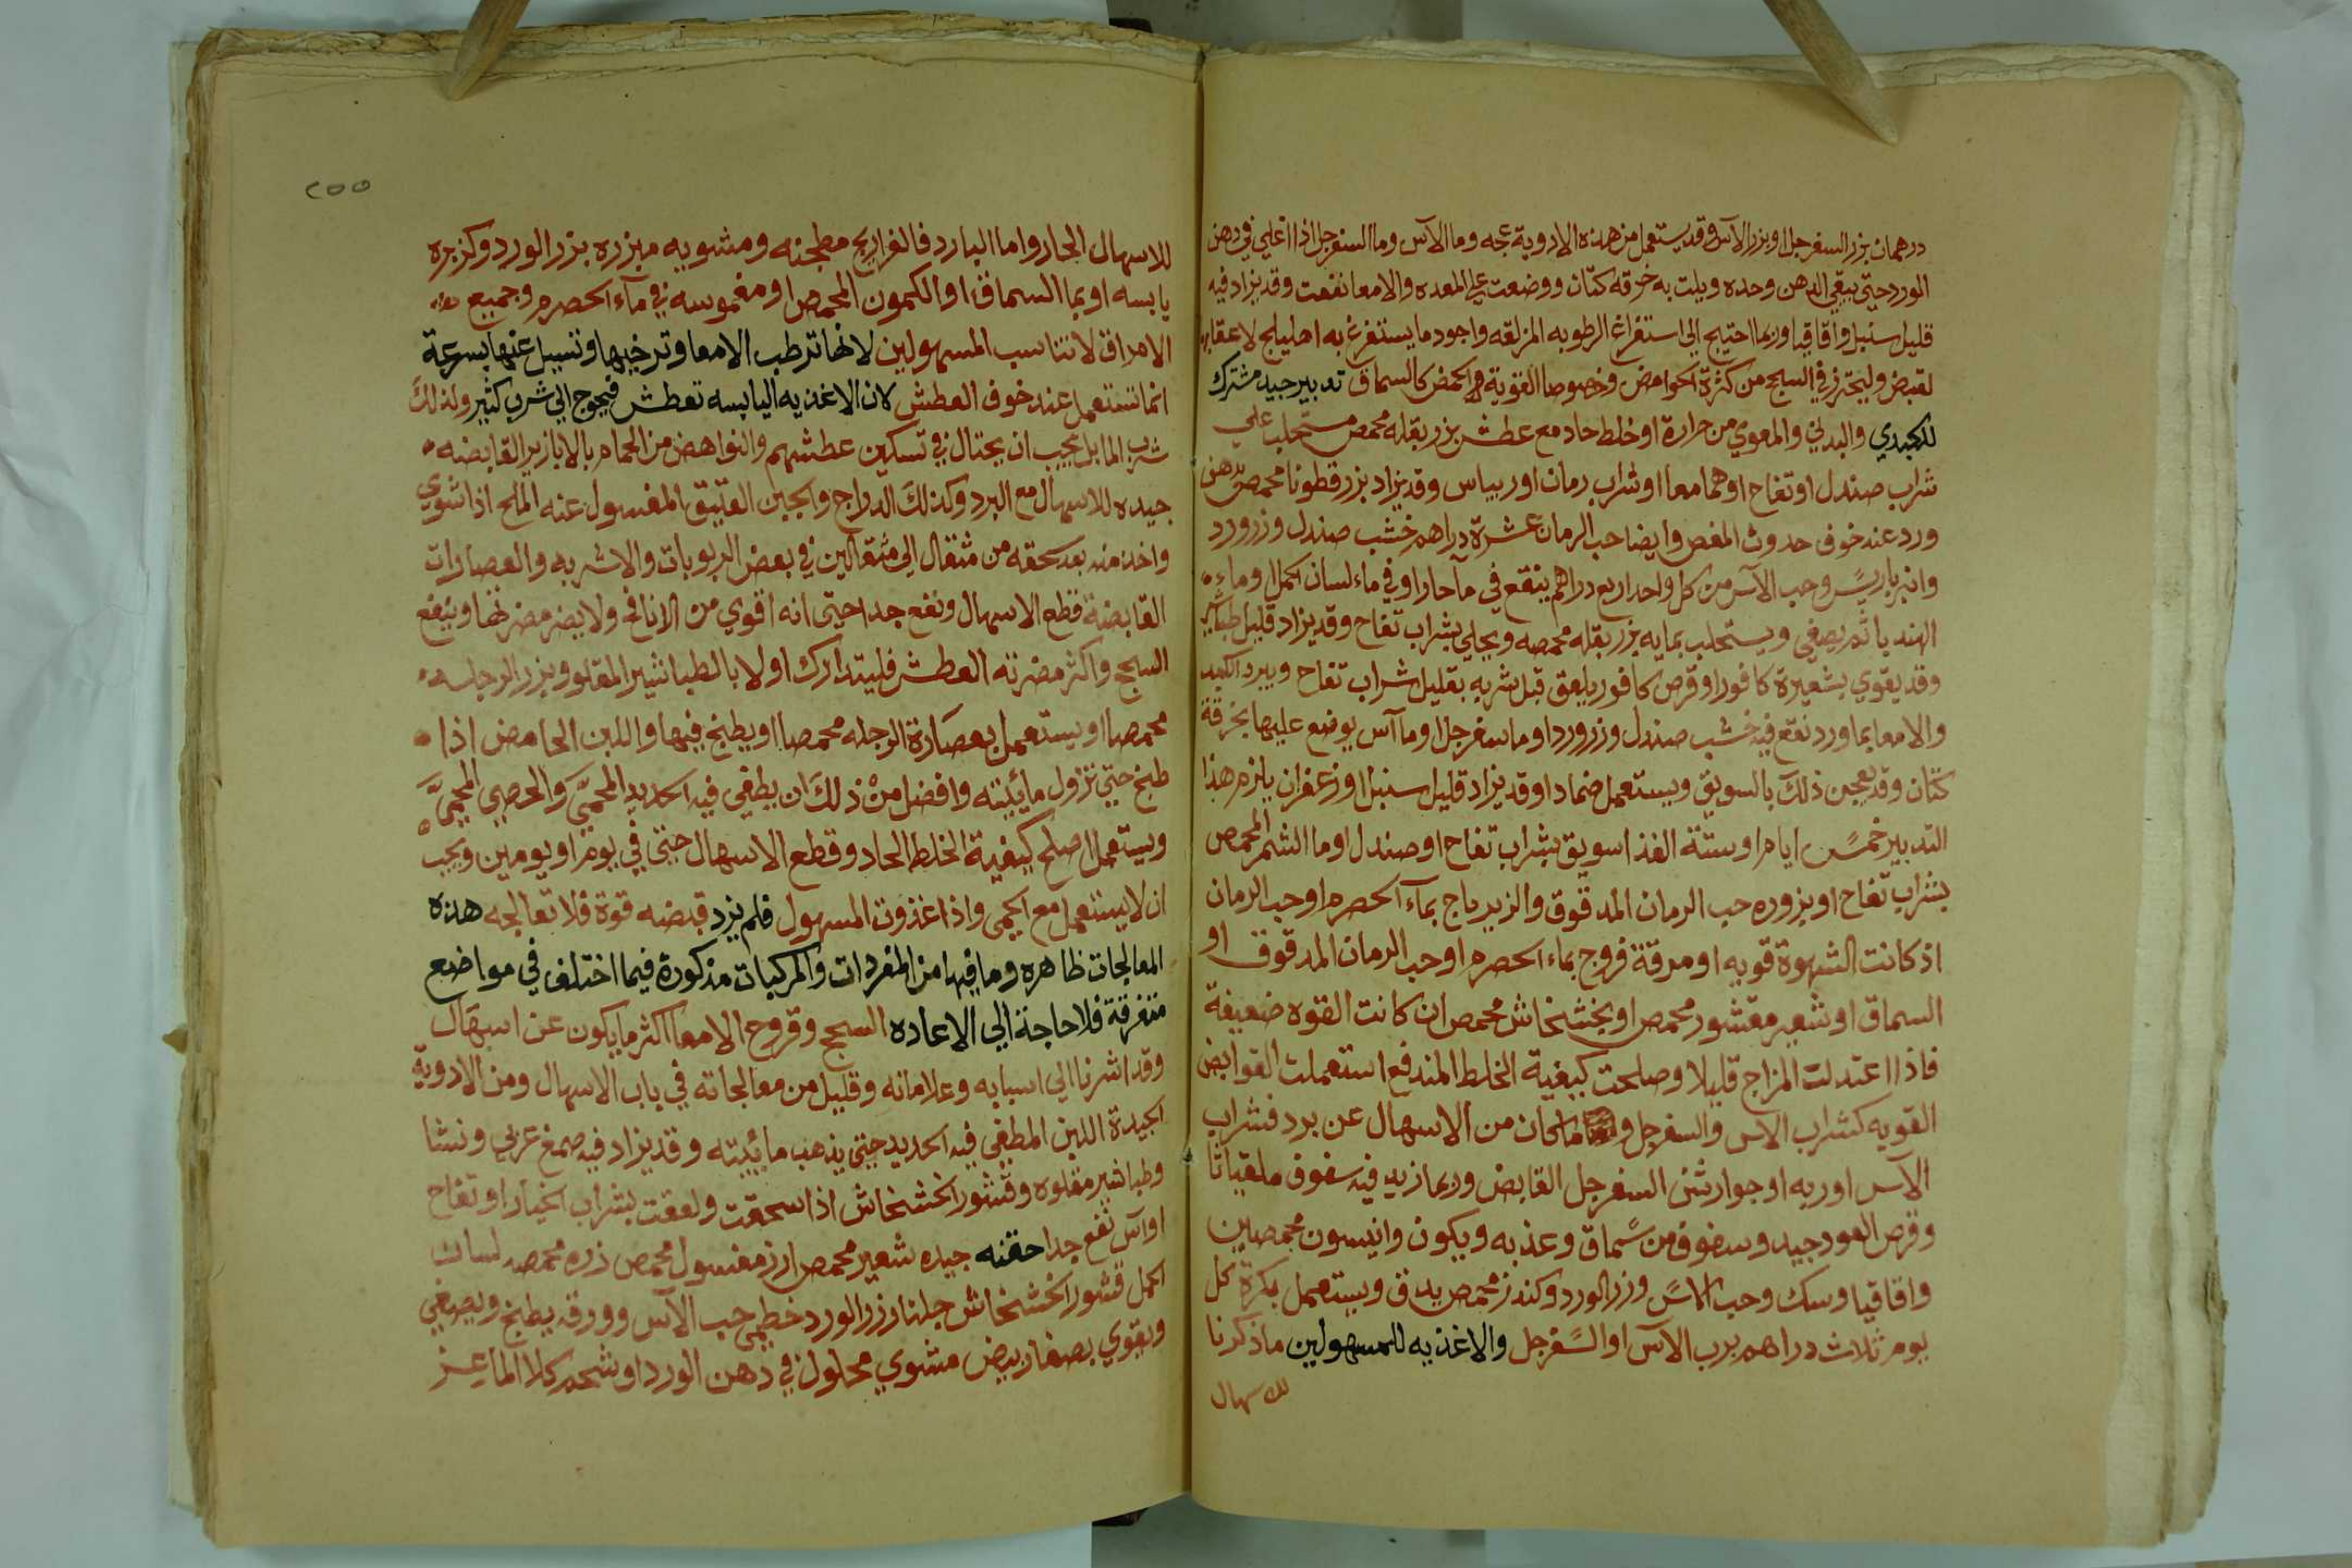 درهمان بزر السفرجل او بزر الآس وقد يستعمل من هذه الادوية عجه وما الآس وما السفرجل اذا اغلي في دهن
الورد حتي يبقي الدهن وحده ويلت به خرقه كتان ووضعت علي المعده والامعا نفعت وقد يزاد فيه
قليل سنبل واقاقيا وربما احتيج الي استفراغ الرطوبه المزلقه واجود ما يستفرغ به اهليلج لاعقابه
لقبض وليحترز في السحج من كثرة الحوامض وخصوصا القوية الحمض كالسماق تدبير جيد مشترك
للكبدي والبدني والمعوي من حرارة او خلط حاد مع عطش بزر بقله محمص مستحلب علي
شراب صندل او تفاح او هما معا او شراب رمان او ريباس وقد يزاد بزر قطونا محمص بدهن
ورد عند خوف حدوث المغص وايضا حب الرمان عشرة دراهم خشب صندل وزر ورد
وانبرباريس وحب الآس من كل واحد اربع دراهم ينقع في مآ حار او في ماء لسان الحمل او ماء
الهندبا ثم يصفي ويستحلب بمايه بزر بقله محمصه ويحلي بشراب تفاح وقد يزاد قليل طباشير
وقد يقوي بشعيرة كافور او قرص كافور يلعق قبل شربه بقليل شراب تفاح ويبرد الكبد
والامعا بماورد نقع فيه خشب صندل وزر ورد او ما سفرجل او ما آس يوضع عليها بخرقة
كتان وقد يعجن ذلك بالسويق ويستعمل ضمادا وقد يزاد قليل سنبل او زعفران يلزم هذا
التدبير خمس ايام او ستة الغذا سويق بشراب تفاح او صندل او ما الشمر المحمص
بشراب تفاح او بزوره حب الرمان المدقوق والزيرباج بمآء الحصرم او حب الرمان
اذ كانت الشهوة قويه او مرقة فروج بماء الحصرم او حب الرمان المدقوق او
السماق او شعير مقشور محمص او بخشخاش محمص ان كانت القوه ضعيفة
فاذا اعتدلت المزاج قليلا وصلحت كيفية الخلط المندفع استعملت القوابض
القويه كشراب الاس والسفرجل و ما كان من الاسهال عن برد فشراب
الآس او ربه او جوارشن السفرجل القابض وربما زيد فيه سفوف ملقياثا
وقرص العود جيد وسفوف من سماق وعذبه ويكون وانيسون محمصين
واقاقيا وسك وحب الآس وزر الورد وكندر محمص يدق ويستعمل بكرة كل
يوم ثلاث دراهم برب الآس او السفرجل والاغذيه للمسهولين ما ذكرنا
للاسهال
٢٥٥
للاسهال الحار واما البارد فالفراريج مطجنه ومشويه مبزره بزر الورد وكزبره
يابسه او بما السماق او الكمون المحمص او مغموسه في مآء الحصرم وجميع
الامراق لا تناسب المسهولين لانها ترطب الامعا وترخيها وتسيل عنها بسرعة
انما تستعمل عند خوف العطش لان الاغذيه اليابسه تعطش فيحوج الي شرب كثير ولذلك
شرب الما بل يجب ان يحتال في تسكين عطشهم والنواهض من الحمام بالابازير القابضه
جيده للاسهال مع البرد وكذلك الدراج والجبن العتيق المغسول عنه الملح اذا شوي
واخذ منه بعد سحقه من مثقال الي مثقالين في بعض الربوبات والاشربه والعصارات
القابضة قطع الاسهال ونفع جدا حتي انه اقوي من الانافح ولا يضر مضرتها وينفع
السحج واكثر مضرته العطش فليتدارك اولا بالطباشير المقلو وبزر الرجله
محمصا او يستعمل بعصارة الرجله محمصا او يطبخ فيها واللبن الحامض اذا
طبخ حتي تزول مائيته وافضل من ذلك ان يطفي فيه الحديد المحمي والحصي المحمي
ويستعمل اصلح كيفية الخلط الحاد وقطع الاسهال حتي في يوم او يومين ويجب
ان لا يستعمل مع الحمي واذا غذوت المسهول فلم يزد قبضه قوة فلا تعالجه هذه
المعالجات ظاهره وما فيها من المفردات والمركبات مذكورة فيما اختلف في مواضع
متفرقة فلا حاجة الي الاعاده السحج وقروح الامعا اكثر ما يكون عن اسهال
وقد اشرنا الي اسبابه وعلاماته وقليل من معالجاته في باب الاسهال ومن الادوية
الجيدة اللبن المطفي فيه الحديد حتي يذهب مائيته وقد يزاد فيه صمغ عربي ونشا
وطباشير مقلوه وقشور الخشخاش اذا سحقت ولعقت بشراب الخيار او تفاح
او آس نفع جدا حقنه جيده شعير محمص ارز مغسول محمص ذره محمصه لسان
الحمل قشور الخشخاش جلنار زر الورد خطمي حب الآس وورقه يطبخ ويصفي
ويقوي بصفار بيض مشوي محلول في دهن الورد او شحم كلا الماعز